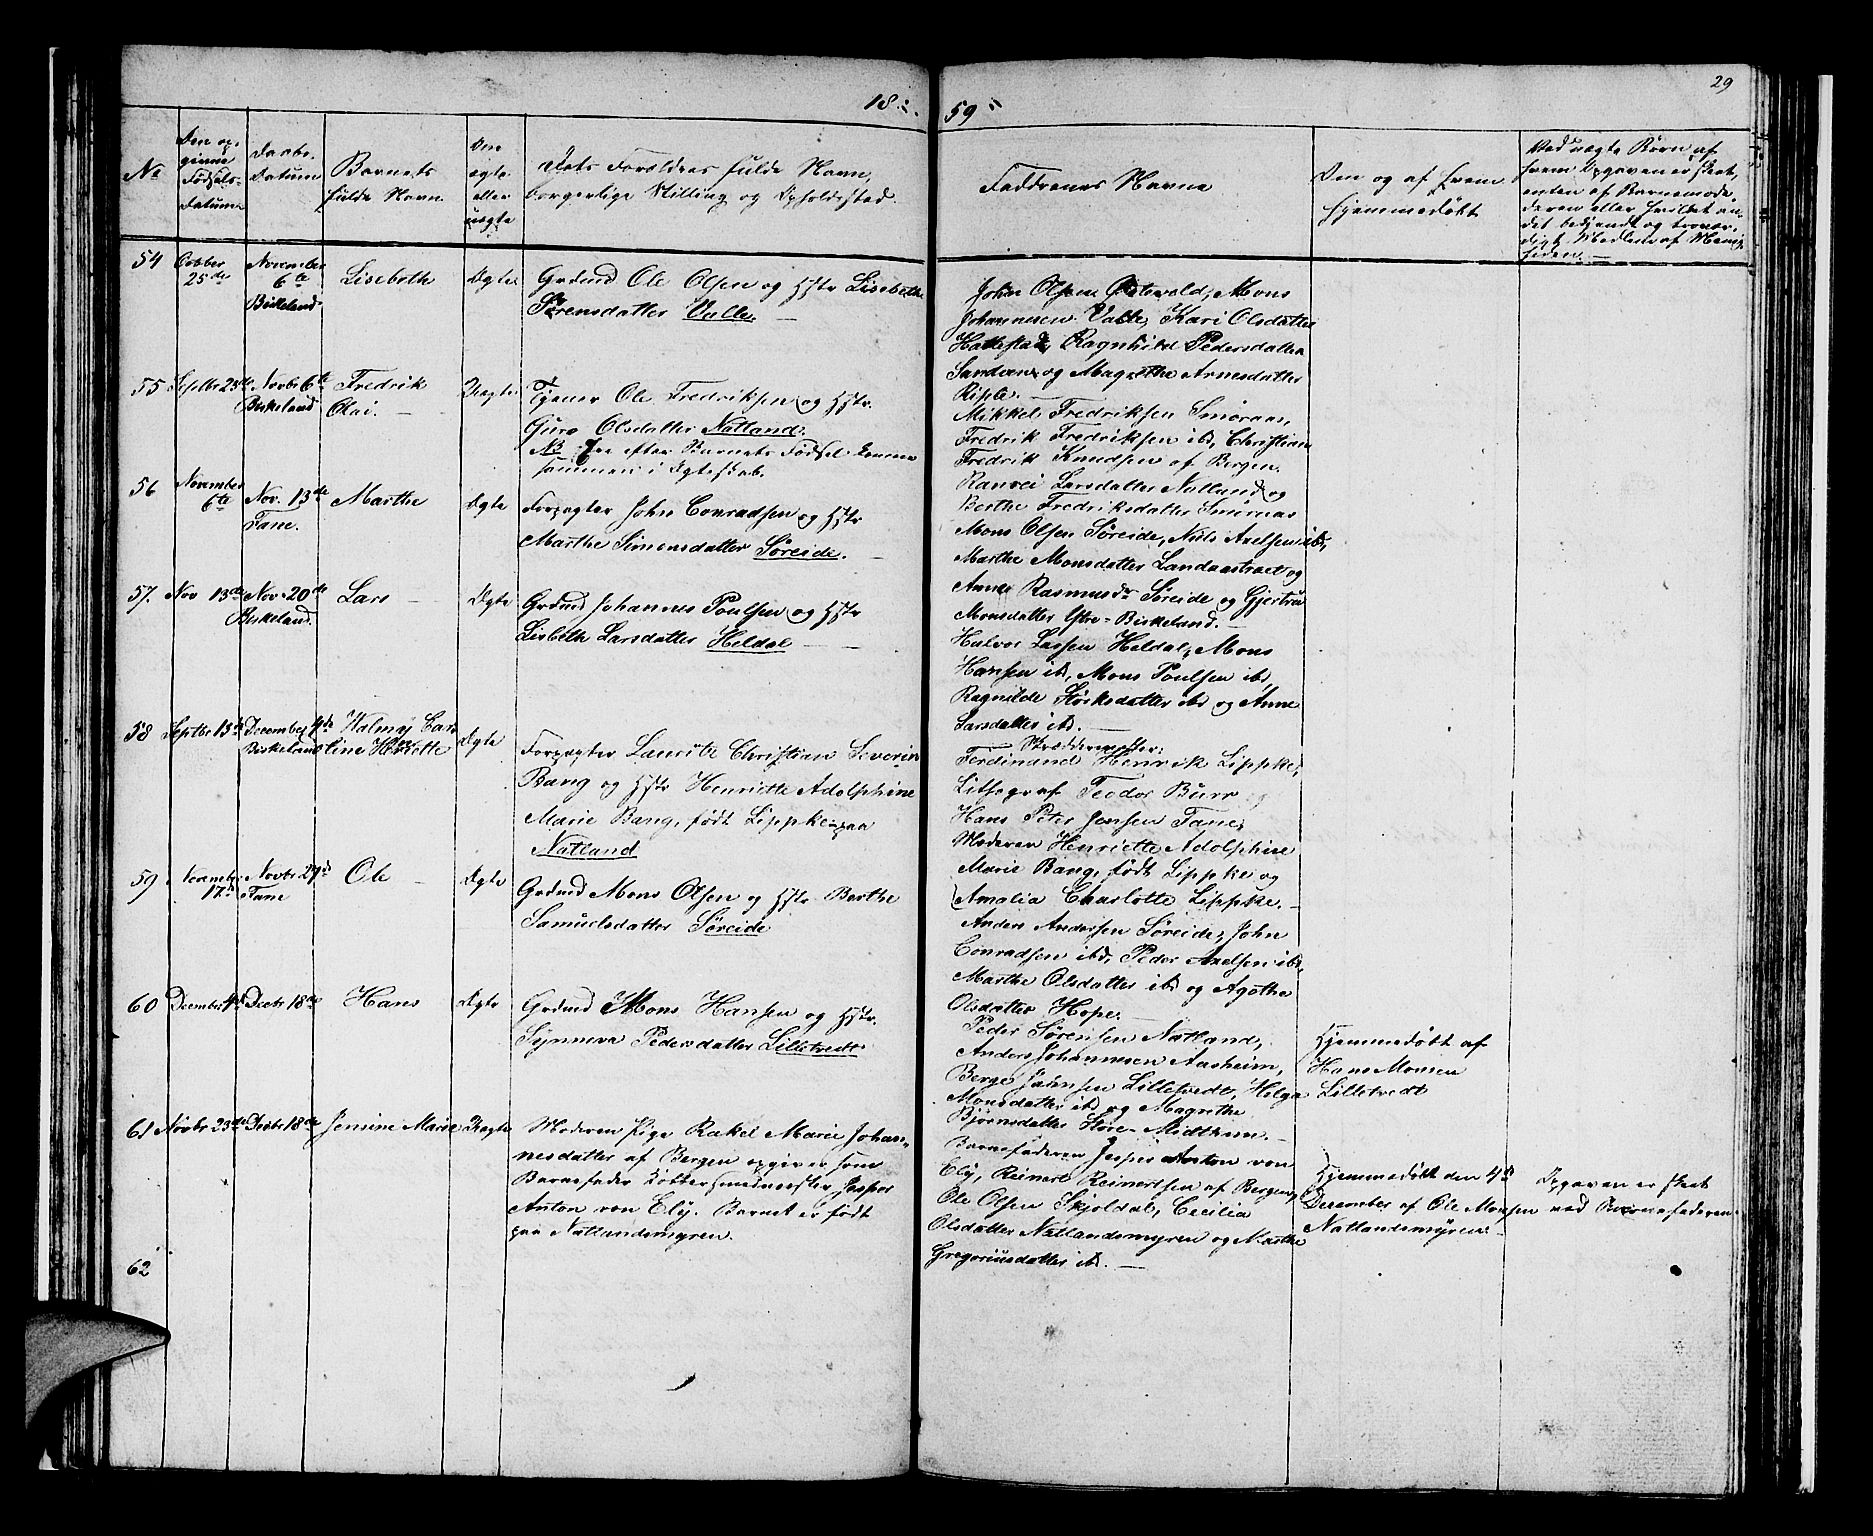 18
59
29
No
Den op-
givne
Fødsels-
datum
Daabs-
Datum
Barnets
fulde Navn.
Om
ægte
eller
uægte
Dets Forældres fulde Navn,
borgerlige Stilling og Opholdssted
Faddrenes Navne
Om og af hvem
hjemmedøbt
Ved uægte Børn af
hvem Opgaven er skeet,
enten af Barnemode-
deren eller hvilket an-
det bekjendt og troevær-
digt Medlem af Menig-
heden.
54
Octbber
25de
November
6te
Birkeland
Lisebeth
Ægte
Grdmd Ole Olsen og Hstr Lisebeth
Sørensdatter Valle.
John Olsen Mons
Johannesen Valle, Kari Olsdatter
Hattestad, Ragnhild Pedersdatter
Sandven og Magrethe Arnesdatter
Riple.
55
Septbr 23de
Novbr 6te
Birkeland
Fredrik
Olai.
Uægte
Tjener Ole Fredriksen og Hstr.
Guro Olsdatter Natland.
NB Ere efter Barnets Fødsel komne
sammen i Ægteskab.
Mikkel Fredriksen Smøraas,
Fredrik Fredriksen ibd, Christian
Fredrik Knudsen af Bergen.
Ranvei Larsdatter Natland og
Berthe Fredriksdatter Smøraas
56
November
6te
Nov. 13de
Fane.
Marthe
Ægte
Forpagter John Conradsen og Hstr
Marthe Simonsdatter Søreide.
Mons Olsen Søreide, Nils Axelsen ibd,
Marthe Monsdatter Landaastræet og
Anne Rasmusdr Søreide og Gjertrud
Monsdatter Ytre-Birkeland.
57.
Nov 13de
Nov. 20de
Birkeland.
Lars
Ægte
Grdmd Johannes Poulsen og Hstr
Lisbeth Larsdatter Heldal
Halvor Larsen Heldal, Mons
Hansen ibd, Mons Poulsen ibd,
Ragnilde Størksdatter ibd og Anne
Larsdatter ibd.
58
Septbr 13de
December 4de
Birkeland
Valmy Caro
line Henriette
Ægte
Forpagter Lauritz Christian Severin
Bang og Hstr Henriette Adolphine
Marie Bang, født Lippke paa
Natland
Skræddermester
Ferdinand Henrik Lippke,
Lithograf Teodor Burr
Hans Peter Jensen Fane,
Moderen Henriette Adolphine
Marie Bang, født Lippke og
Amalia Charlotte Lippke.
59
November
17de
Novbr 27de
Fane
Ole
Ægte
Grdmd Mons Olsen og Hstr Berthe
Samuelsdatter Søreide
Anders Andersen Søreide, John
Conradsen ibd, Peder Axelsen ibd,
Marthe Olsdatter ibd og Agothe
Olsdatter Hope.
60
December 4de
Decbr 18de
Hans
Ægte
Grdmd Mons Hansen og Hstr.
Synneva Pedersdatter Lilletvedt
Peder Sørensen Natland,
Anders Johannesen Aasheim,
Berge Lilletvedt, Helga
Monsdatter ibd og Magrethe
Bjørnsdatter Store-Midthun.
Hjemmedøbt af
Hans Monsen
Lilletvedt
61
Novbr 23de
Decbr 18de
Jensine Marie
Uægte
Moderen Pige Rakel Marie Johan-
nesdatter af Bergen opgiver som
Barnefader Kobbersmedmester Jesper
Anton von Ely. Barnet er født
paa Natlandsmyren.
Barnefaderen Jesper Anton von
Ely, Reinert Reinertsen af Bergen,
Ole Olsen Skjoldal, Cecilia
Olsdatter Natlandsmyren og Marthe
Gregoriusdatter ibd.
Hjemmedøbt den 4de
December af Ole Monsen
Natlandsmyren
Opgaven er skeet
ved Barnefaderen
62